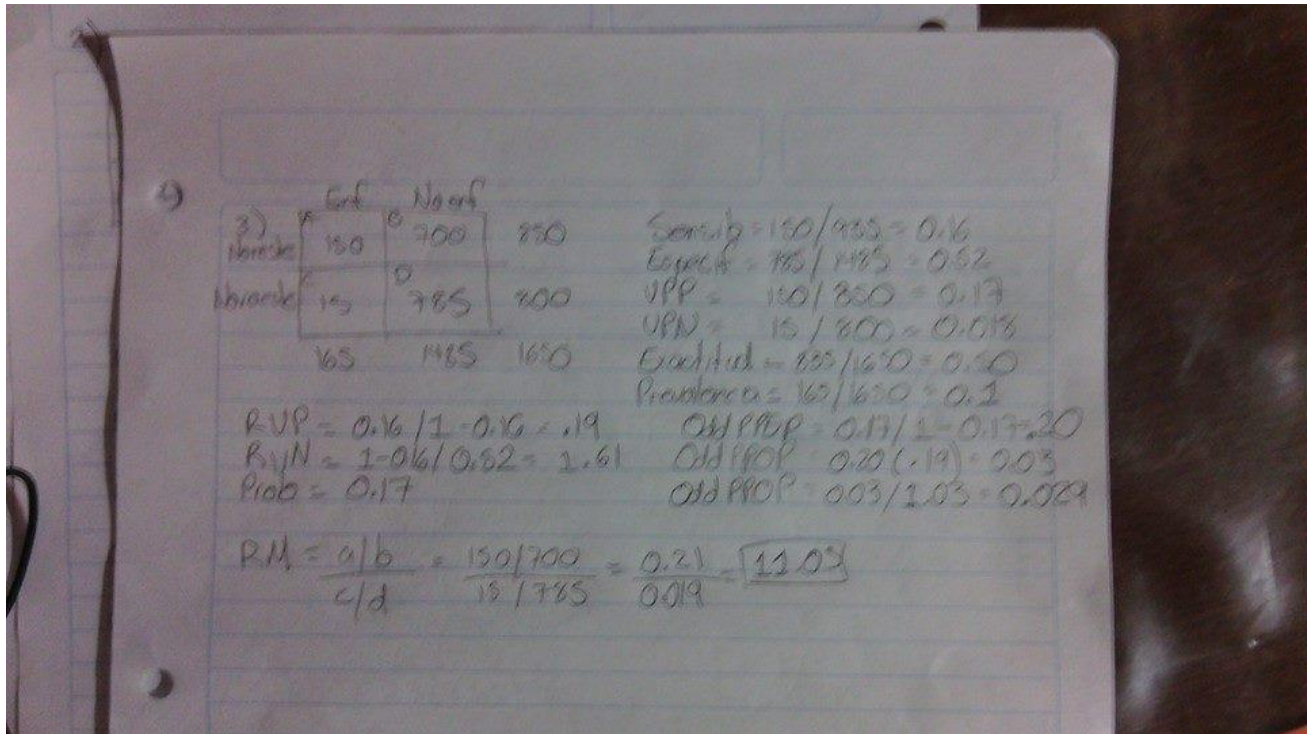 Enf No enf
3) A B
Noreste 150 700 850
C D
Noroeste 15 785 800
165 1485 1650
Sensib = 150/935 = 0.16
Especif = 785/1485 = 0.52
VPP = 150/850 = 0.17
VPN = 15/800 = 0.018
Exactitud = 835/1650 = 0.50
Prevalencia = 165/1650 = 0.1
RVP = 0.16/1-0.16 = .19
RVN = 1-0.16/0.52 = 1.61
Prob = 0.17
Odd PPOP = 0.17/1-0.17=.20
Odd PPOP = 0.20(.19) = 0.03
Odd PPOP = 0.03/1.03 = 0.029
RM = a/b = 150/700 = 0.21 = 11.05
c/d 15/785 0.019